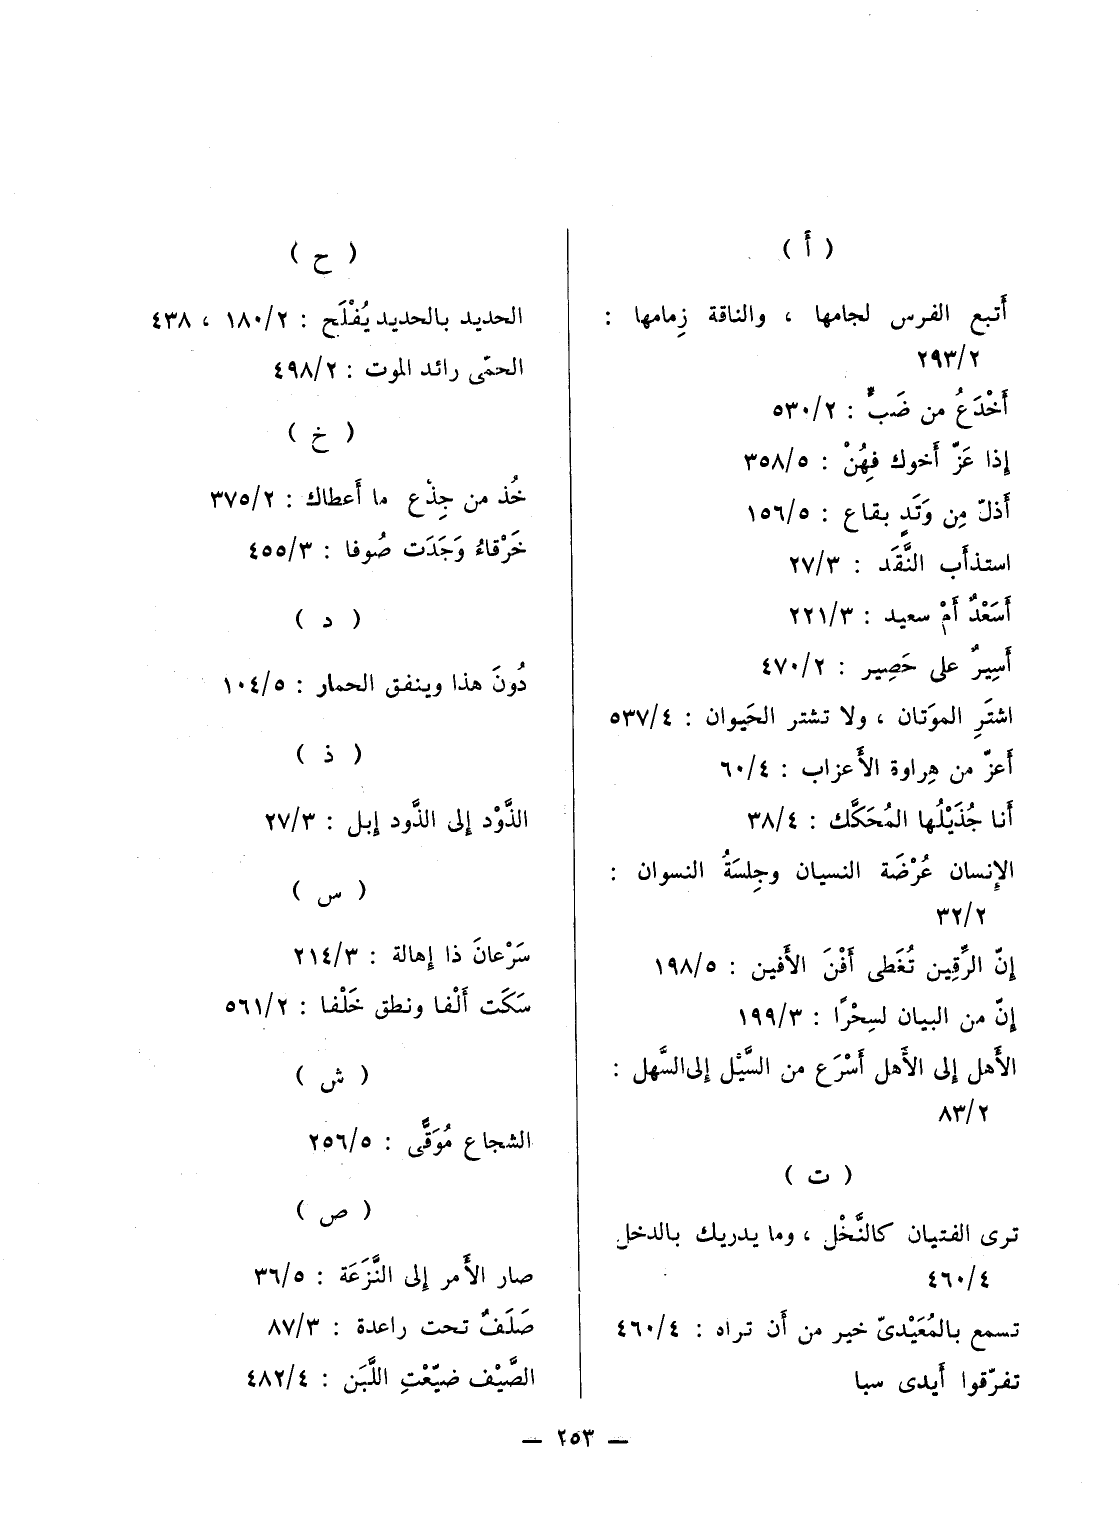 ( أ )
أَتبع الفرس لجامها ، والناقة زِمامها :
٢٩٣/٢
أَخْدَعُ من ضَبٍّ : ٥٣٠/٢
إذا عَزّ أَخوك فهُنْ : ٣٥٨/٥
أَذلّ مِن وَتَدٍ بقاع : ١٥٦/٥
استذأَب النَّقَد : ٢٧/٣
أَسَعْدٌ أَمْ سعيد : ٢٢١/٣
أَسِيرٌ على حَصِير : ٤٧٠/٢
اشتَرِ الموَتان ، ولا تشتر الحَيوان : ٥٣٧/٤
أَعزّ من هِراوة الأَعزاب : ٦٠/٤
أَنا جُذَيْلُها المُحَكَّك : ٣٨/٤
الإِنسان عُرْضَة النسيان وجِلسَةُ النسوان :
٣٢/٢
إنّ الرِّقِين تُغَطى أَفْنَ الأَفين : ١٩٨/٥
إنّ من البيان لسِحْرًا : ١٩٩/٣
الأَهل إلى الأَهل أَسْرَع من السَّيْل إلى السَّهل :
٨٣/٢
( ت )
ترى الفتيان كالنَّخْل ، وما يدريك بالدخل
٤٦٠/٤
تسمع بالمُعَيْدىّ خير من أَن تراه : ٤٦٠/٤
تفرّقوا أَيدى سبا
( ح )
الحديد بالحديد يُفْلَح : ١٨٠/٢ ، ٤٣٨
الحمّى رائد الموت : ٤٩٨/٢
( خ )
خُذ من جِذْع ما أَعطاك : ٣٧٥/٢
خَرْقاءُ وَجَدَت صُوفا : ٤٥٥/٣
( د )
دُونَ هذا وينفق الحمار : ١٠٤/٥
( ذ )
الذَّوْد إلى الذَّود إبل : ٢٧/٣
( س )
سَرْعانَ ذا إهالة : ٢١٤/٣
سَكَت أَلْفا ونطق خَلْفا : ٥٦١/٢
( ش )
الشجاع مُوَقًّى : ٢٥٦/٥
( ص )
صار الأَمر إلى النَّزَعَة : ٣٦/٥
صَلَفٌ تحت راعدة : ٨٧/٣
الصَّيْف ضيّعْتِ اللَّبَن : ٤٨٢/٤
— ٢٥٣ —